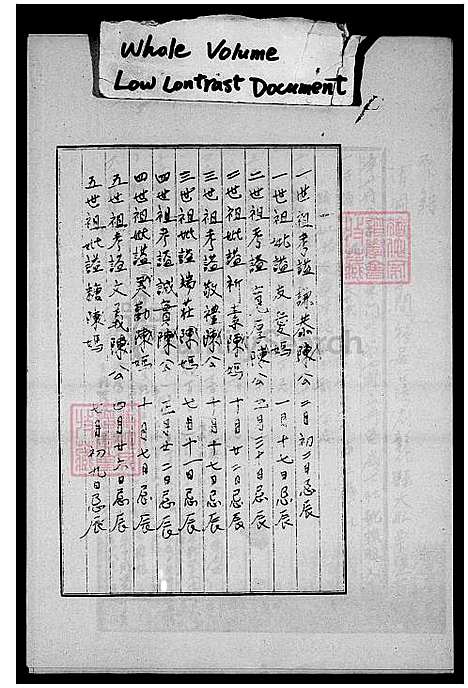 Whole Volume
Low Contrast Document
一世祖考謚謙恭陳公 二月初二日忌辰
一世祖妣謚友愛媽 一月十七日忌辰
二世祖考謚寬厚陳公 三月三十日忌辰
二世祖妣謚祈素陳媽 十月廿二日忌辰
三世祖考謚敬禮陳公 十月十七日忌辰
三世祖妣謚端莊陳媽 七月十一日忌辰
四世祖考謚誠實陳公 正月廿二日忌辰
四世祖妣謚 勤陳媽 十一月七日忌辰
五世祖考謚文義陳公 四月廿六日忌辰
五世祖妣謚 陳媽 七月初九日忌辰